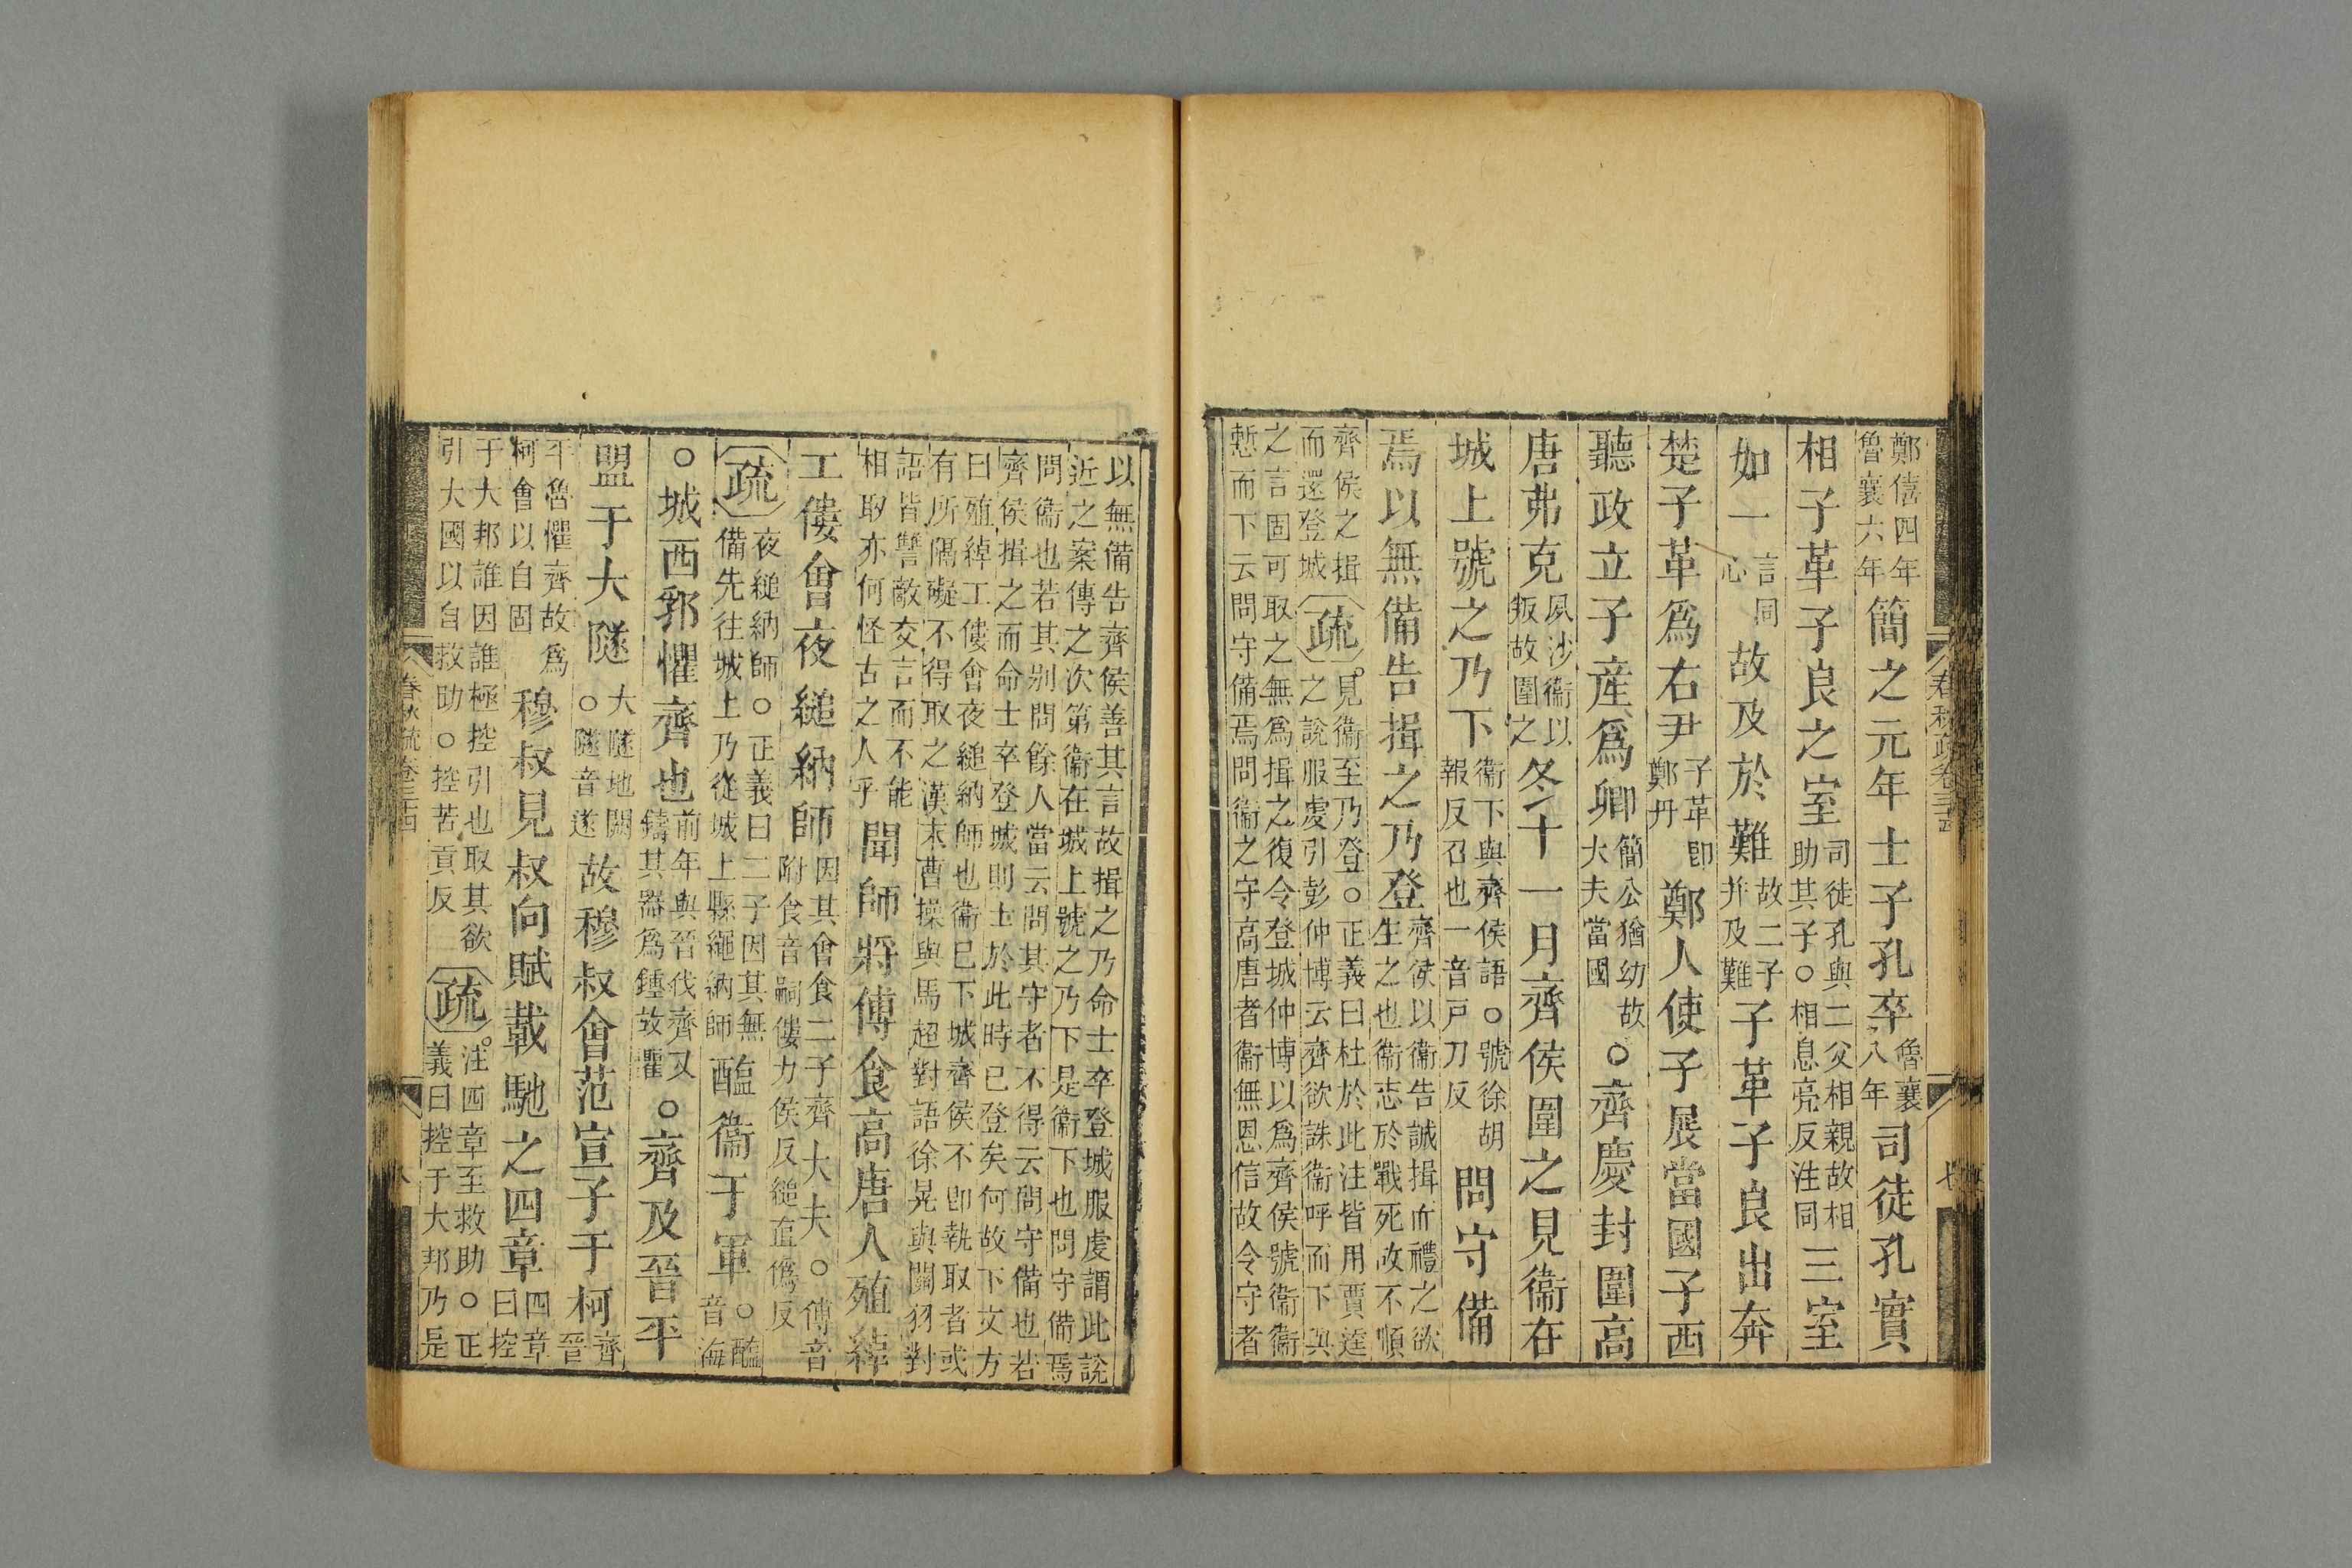 鄭僖四年魯襄六年簡之元年士子孔卒魯襄八年司徒孔實
相子革子良之室司徒孔與二父相親故相助其子○相息亮反注同三室
如一言同心故及於難故二子并及難子革子良出奔
楚子革爲右尹子革即鄭丹鄭人使子展當國子西
聽政立子產爲卿簡公猶幼故大夫當國○齊慶封圍高
唐弗克夙沙衞以叛故圍之冬十一月齊侯圍之見衞在
城上號之乃下衞下與齊侯語○號徐胡報反召也一音戸刀反問守備
焉以無備告揖之乃登齊侯以衞告誠揖而禮之欲生之也衞志於戰死故不順
齊侯之揖而還登城疏見衞至乃登○正義曰杜於此注皆用賈逵之說服虔引彭仲博云齊欲誅衞呼而下與
之言固可取之無爲揖之復令登城仲博以爲齊侯號衞衞慙而下云問守備焉問衞之守高唐者衞無恩信故令守者
以無備告齊侯善其言故揖之乃命士卒登城服虔謂此說近之案傳之次第衞在城上號之乃下是衞下也問守備焉
問衞也若其別問餘人當云問其守者不得云問守備也若齊侯揖之而命士卒登城則士於此時已登矣何故下文方
曰殖綽工僂會夜縋納師也衞已下城齊侯不即執取者或有所隔礙不得取之漢末曹操與馬超對語徐晃與關羽對
語皆讐敵交言而不能相取亦何怪古之人乎聞師將傅食高唐人殖綽
工僂會夜縋納師因其會食二子齊大夫○傅音附食音嗣僂力侯反縋直僞反
疏夜縋納師○正義曰二子因其無備先往城上乃從城上縣繩納師醢衞于軍○醢音海
○城西郛懼齊也前年與晉伐齊又鑄其器爲鍾故懼○齊及晉平
盟于大隧大隧地闕○隧音遂故穆叔會范宣子于柯齊晉
平魯懼齊故爲柯會以自固穆叔見叔向賦載馳之四章四章曰控
于大邦誰因誰極控引也取其欲引大國以自救助○控苦貢反疏注四章至救助○正義曰控于大邦乃是
春秋疏卷三十四
七
春秋疏卷三十四
八